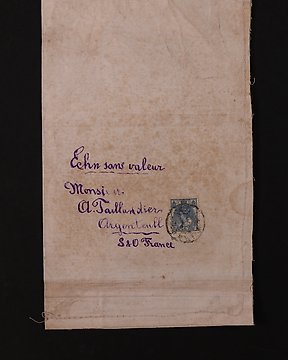 Echn sans valeur
Monsieur
A. Taillandier
Argenteuil
S&O France